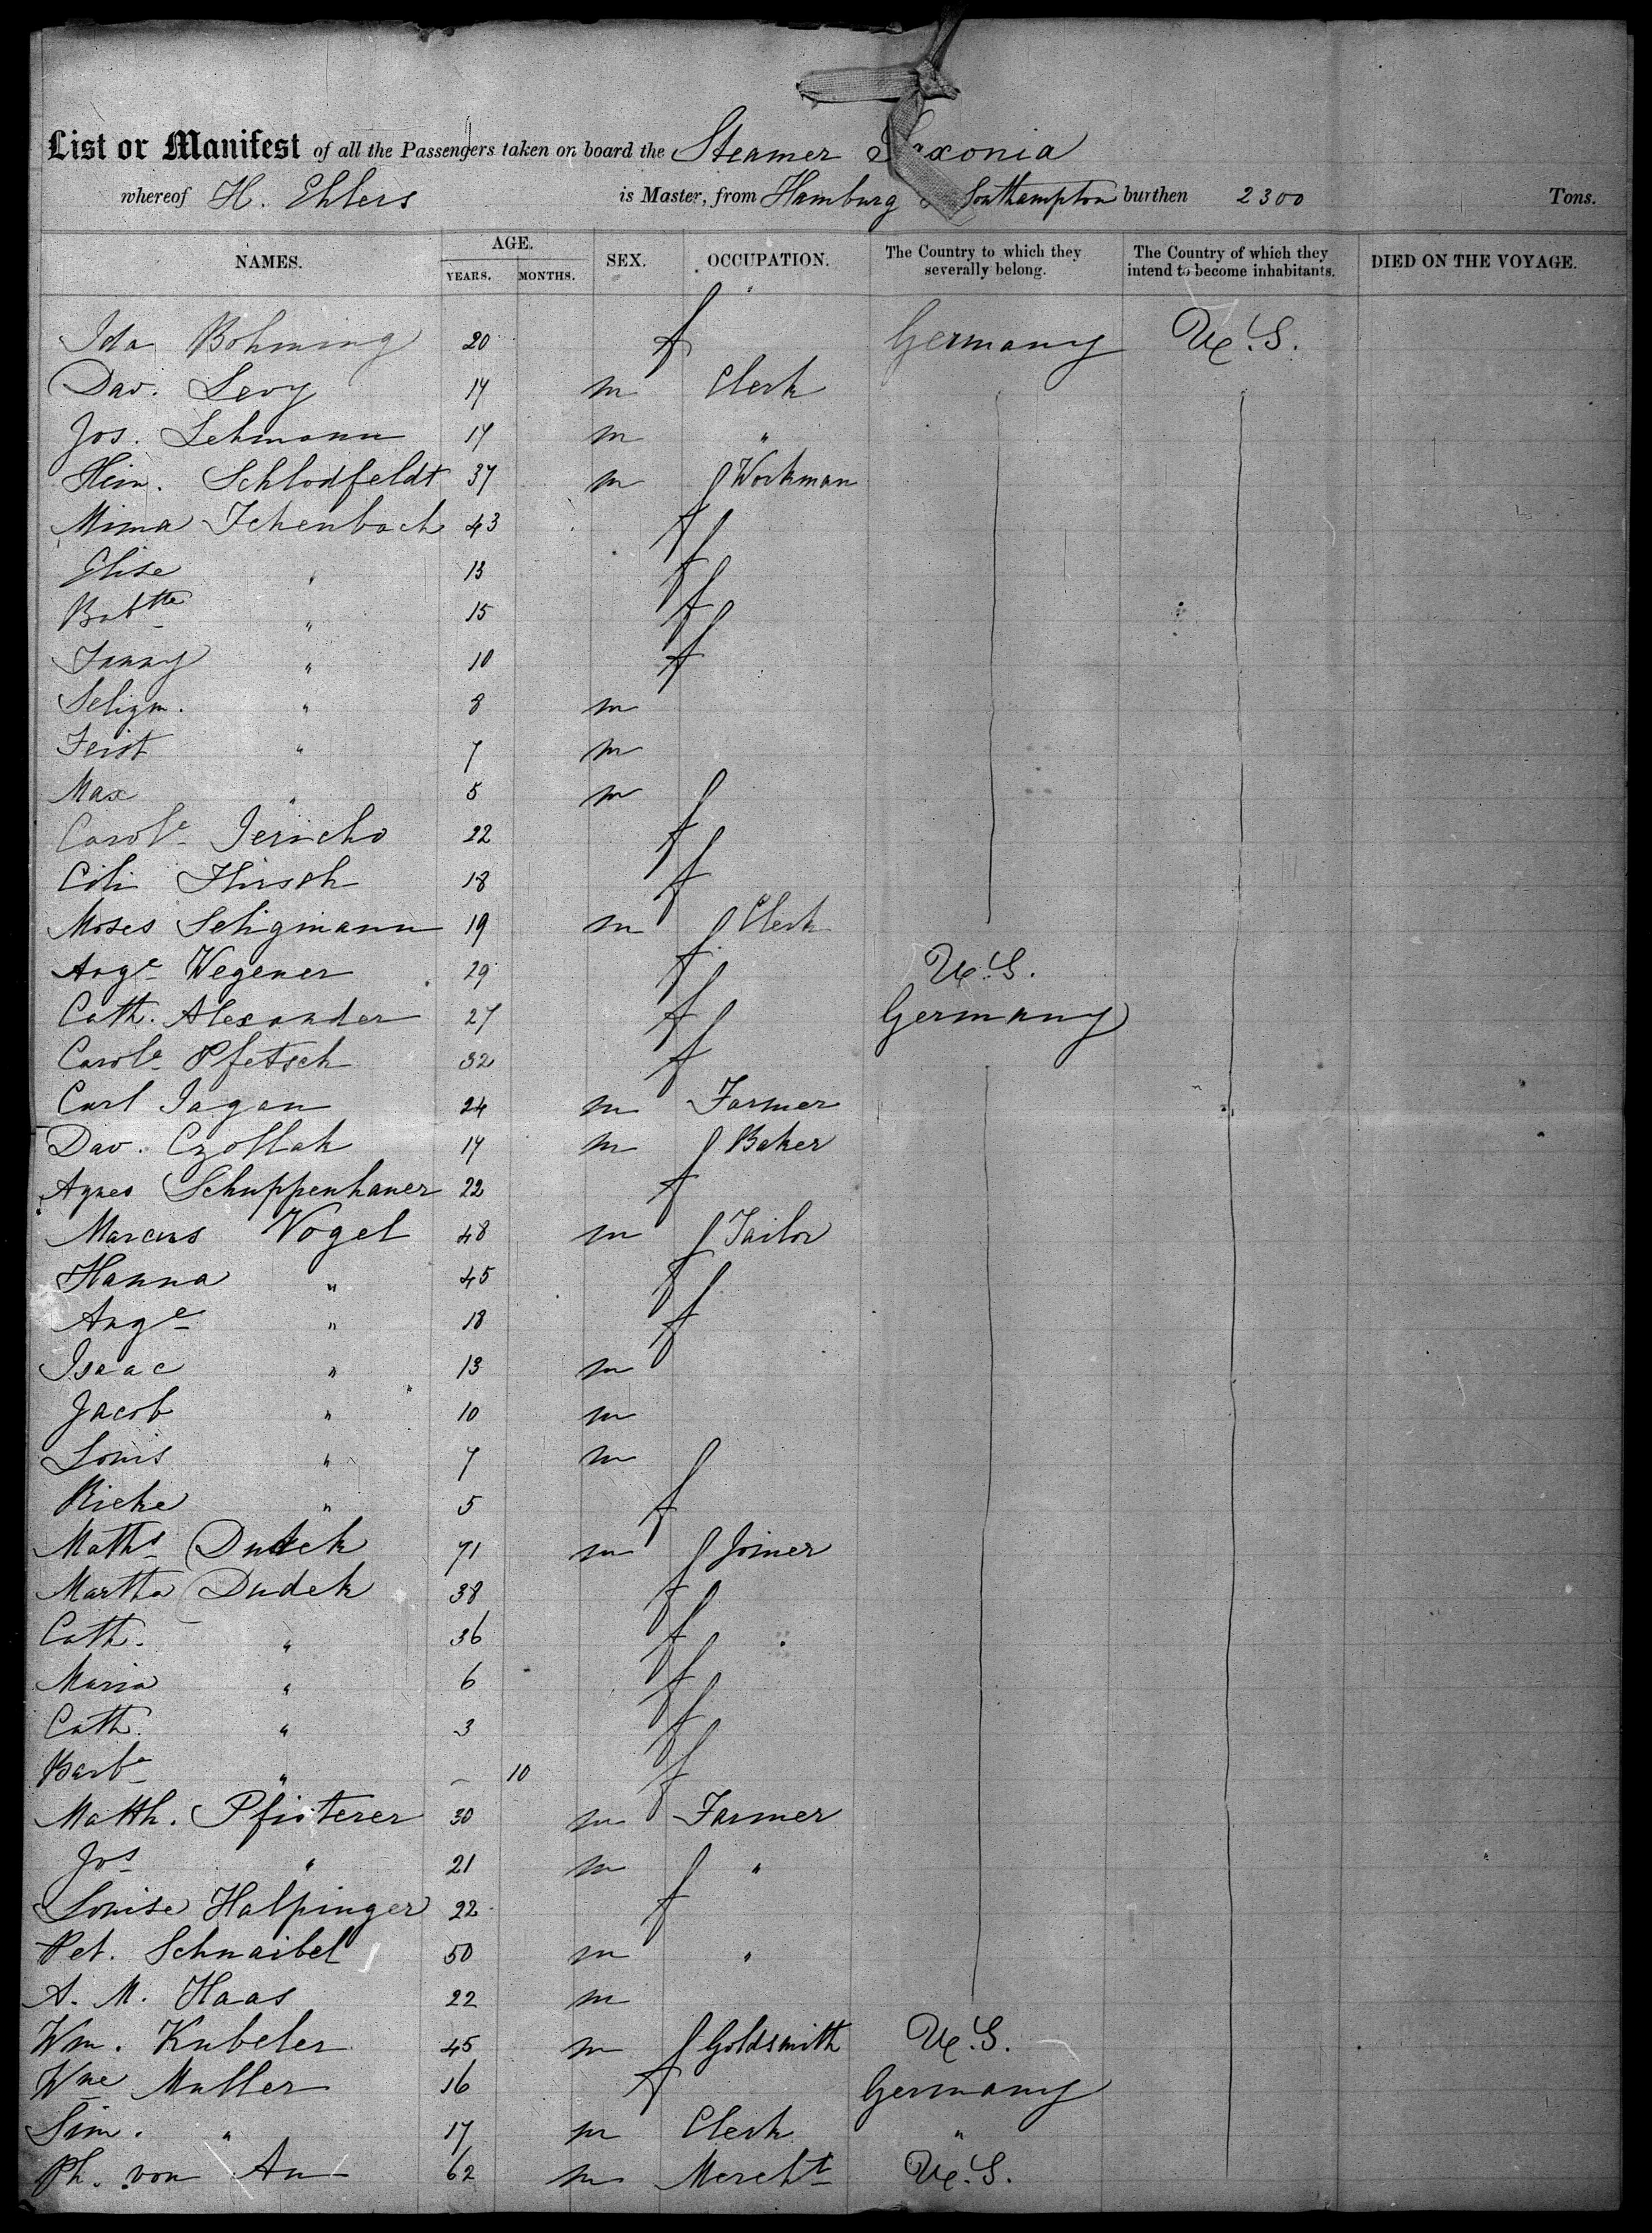 List or Manifest of all the Passengers taken on board the Steamer Saxonia
whereof H. Ehlers is Master, from Hamburg & Southampton burthen 2300 Tons.
NAMES. AGE. YEARS. MONTHS. SEX. OCCUPATION. The Country to which they severally belong. The Country of which they intend to become inhabitants. DIED ON THE VOYAGE.
Ida Bohming 20 f Germany U.S.
Dav. Levy 17 m Clerk
Jos. Lehmann 17 m "
Hein. Schlodfeldt 37 m Workman
Mima Ichenbach 43 f
Elise " 13 f
Babtte " 15 f
Fanny " 10 f
Seligm. " 8 m
Feist " 7 m
Max " 5 m
Carole Jericho 22 f
Cili Hirsch 18 f
Moses Seligmann 19 m Clerk
Auge Wegener 29 f U.S.
Cath. Alexander 27 f Germany
Carole Pfetsch 32 f
Carl Jagan 24 m Farmer
Dav. Czollak 17 m Baker
Agnes Schuppenhauer 22 f
Marcus Vogel 48 m Tailor
Hanna " 45 f
Auge " 18 f
Isaac " 13 m
Jacob " 10 m
Louis " 7 m
Rieke " 5 f
Maths Dudek 71 m Joiner
Martha Dudek 38 f
Cath. " 36 f
Maria " 6 f
Cath. " 3 f
Barba " – 10 f
Matth. Pfisterer 30 m Farmer
Jos " 21 m "
Louise Halpinger 22 f
Pet. Schnaibel 50 m "
A. M. Haas 22 m
Wm. Kubeler 45 m Goldsmith U.S.
Wne Muller 16 f Germany
Sim. " 17 m Clerk "
Ph. von Au 62 m Mercht U.S.